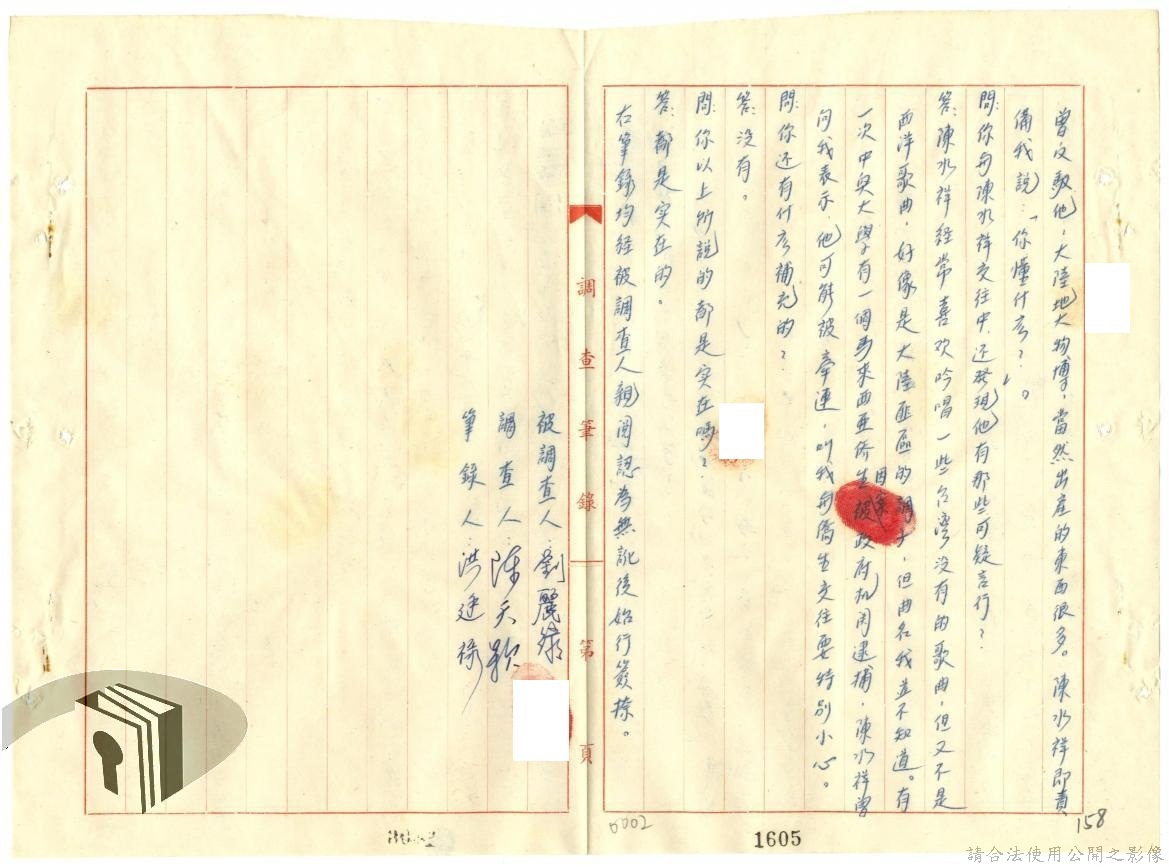 曾反駁他，大陸地大物博，當然出產的東西很多。陳水祥即責
備我說：「你懂什么？」。
問：你與陳水祥交往中，还發現他有那些可疑言行？
答：陳水祥経常喜欢吟唱一些台灣没有的歌曲，但又不是
西洋歌曲，好像是大陸匪區的調子，但曲名我並不知道。有
一次中興大學有一個馬來西亜侨生因案被政府机関逮捕，陳水祥曾
向我表示，他可能被牽連，叫我與僑生交往要特别小心。
問：你还有什么補充的？
答：没有。
問：你以上所說的都是实在嗎？
答：都是实在的。
右筆錄均経被調查人親閱認為無訛後始行簽捺。
調查筆錄 第 頁
被調查人：劉麗
調查人：陳天
筆錄人：洪
0002
1605
158
請合法使用公開之影像